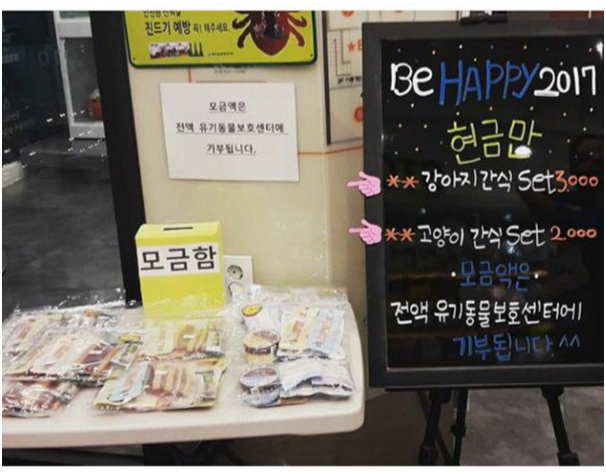 진드기 예방 꼭! 해주세요.
모금액은
전액 유기동물보호센터에
기부됩니다.
모금함
Be HAPPY 2017
현금만
** 강아지간식 Set 3,000
** 고양이 간식 Set 2,000
·모금액은·
전액 유기동물보호센터에
기부됩니다^^